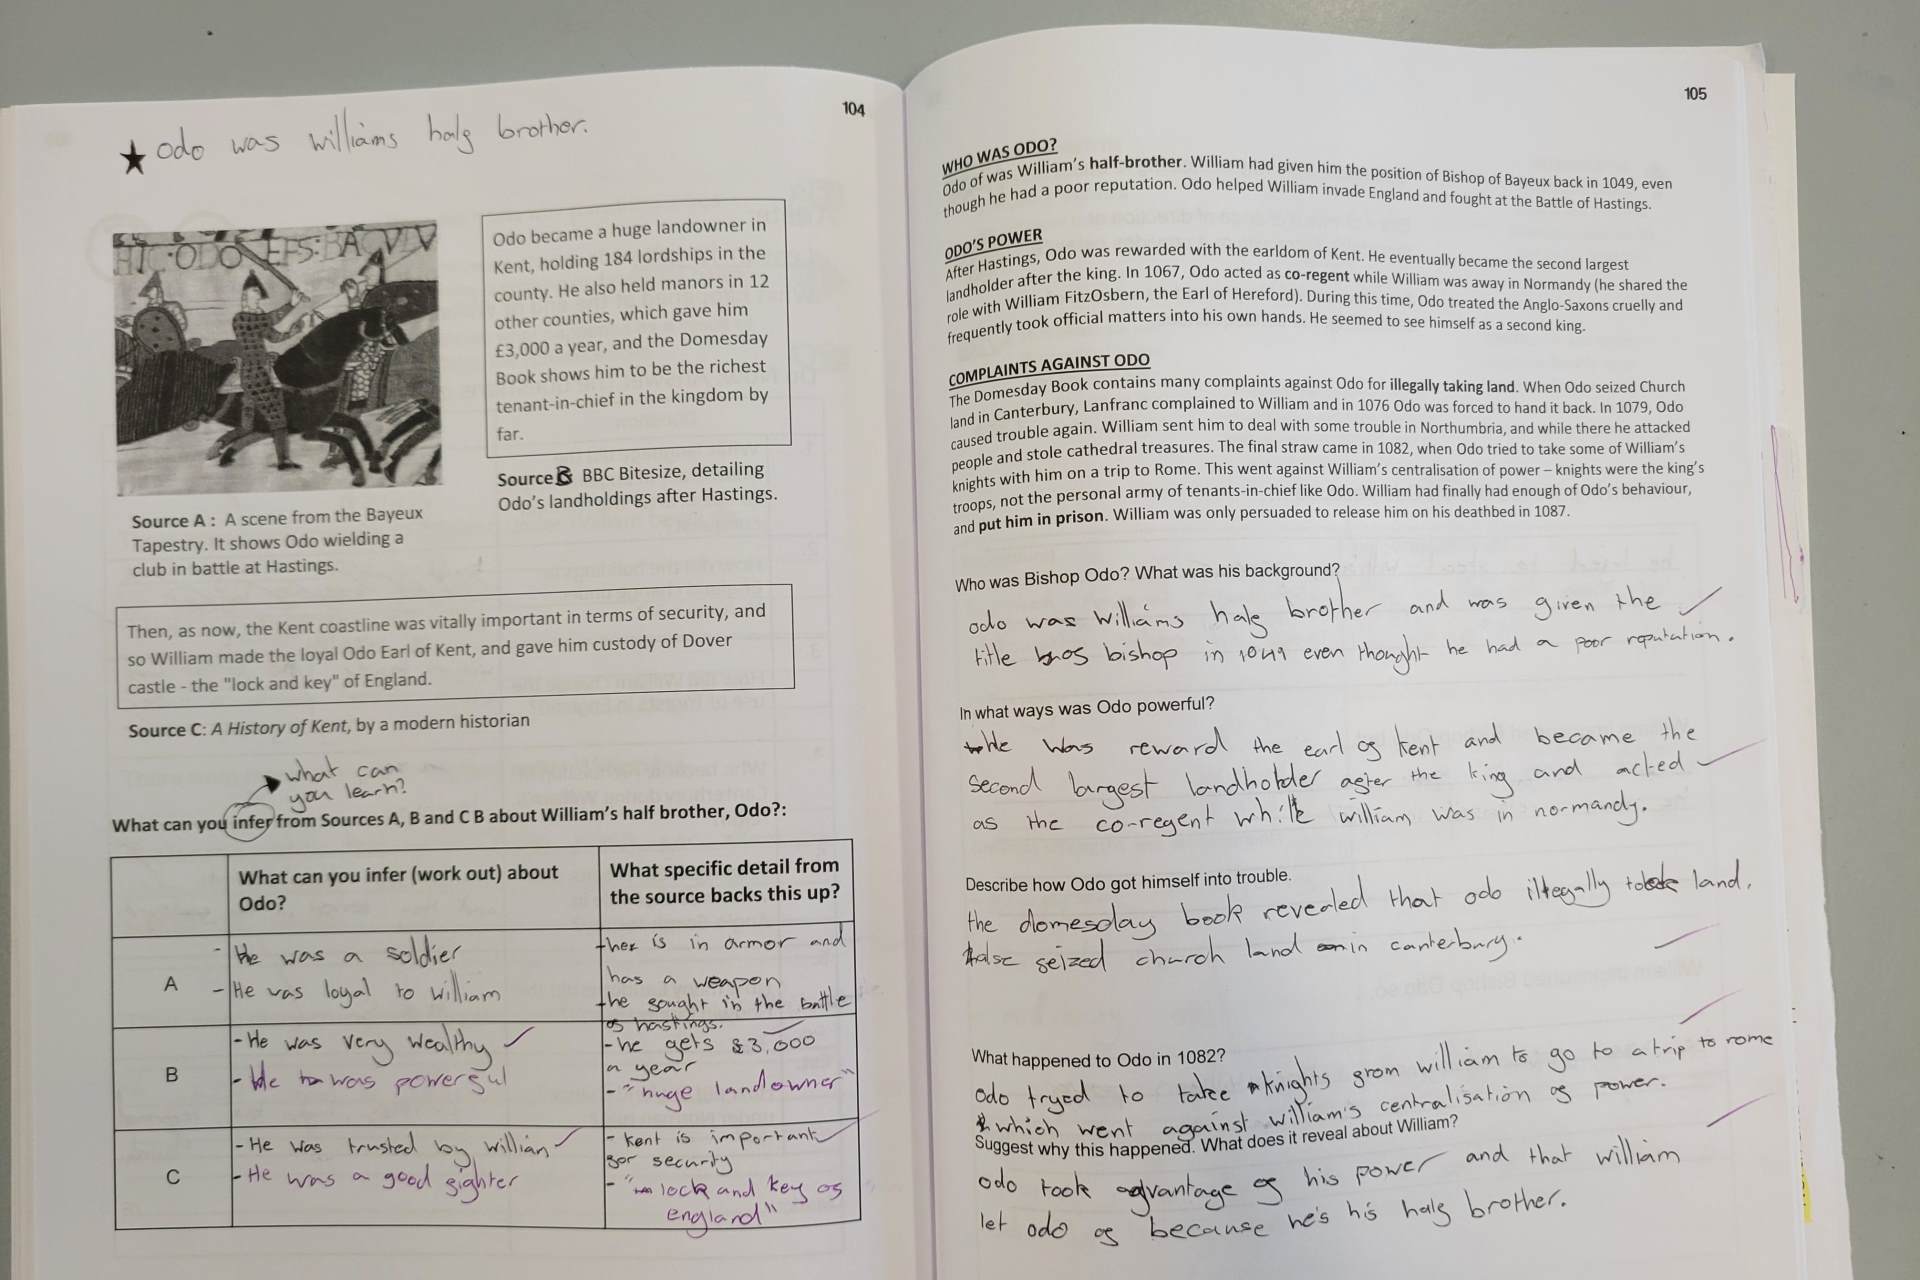 104
★ odo was williams half brother.
HIC·ODO EPS: BACVLV
Odo became a huge landowner in
Kent, holding 184 lordships in the
county. He also held manors in 12
other counties, which gave him
£3,000 a year, and the Domesday
Book shows him to be the richest
tenant-in-chief in the kingdom by
far.
Source B BBC Bitesize, detailing
Odo's landholdings after Hastings.
Source A : A scene from the Bayeux
Tapestry. It shows Odo wielding a
club in battle at Hastings.
Then, as now, the Kent coastline was vitally important in terms of security, and
so William made the loyal Odo Earl of Kent, and gave him custody of Dover
castle - the "lock and key" of England.
Source C: A History of Kent, by a modern historian
what can
you learn?
What can you infer from Sources A, B and C B about William's half brother, Odo?:
What can you infer (work out) about
Odo?
What specific detail from
the source backs this up?
A
- He was a soldier
- He was loyal to william
he is in armor and
has a weapon
he fought in the battle
of hastings.
B
- He was very wealthy
- He was powerful
- he gets £3,000
a year
- "huge landowner"
C
- He was trusted by willian
- He was a good fighter
- kent is important
for security
- "lock and key of
england"
105
WHO WAS ODO?
Odo of was William's half-brother. William had given him the position of Bishop of Bayeux back in 1049, even
though he had a poor reputation. Odo helped William invade England and fought at the Battle of Hastings.
ODO'S POWER
After Hastings, Odo was rewarded with the earldom of Kent. He eventually became the second largest
landholder after the king. In 1067, Odo acted as co-regent while William was away in Normandy (he shared the
role with William FitzOsbern, the Earl of Hereford). During this time, Odo treated the Anglo-Saxons cruelly and
frequently took official matters into his own hands. He seemed to see himself as a second king.
COMPLAINTS AGAINST ODO
The Domesday Book contains many complaints against Odo for illegally taking land. When Odo seized Church
land in Canterbury, Lanfranc complained to William and in 1076 Odo was forced to hand it back. In 1079, Odo
caused trouble again. William sent him to deal with some trouble in Northumbria, and while there he attacked
people and stole cathedral treasures. The final straw came in 1082, when Odo tried to take some of William's
knights with him on a trip to Rome. This went against William's centralisation of power – knights were the king's
troops, not the personal army of tenants-in-chief like Odo. William had finally had enough of Odo's behaviour,
and put him in prison. William was only persuaded to release him on his deathbed in 1087.
Who was Bishop Odo? What was his background?
odo was williams half brother and was given the
title bishop in 1049 even thought he had a poor reputation.
In what ways was Odo powerful?
He was reward the earl of kent and became the
second largest landholder after the king and acted
as the co-regent while william was in normandy.
Describe how Odo got himself into trouble.
the domesday book revealed that odo illegally took land.
Halse seized church land in canterbury.
What happened to Odo in 1082?
odo tryed to take knights from william to go to a trip to rome
which went against william's centralisation of power.
Suggest why this happened. What does it reveal about William?
odo took advantage of his power and that william
let odo of because he's his half brother.